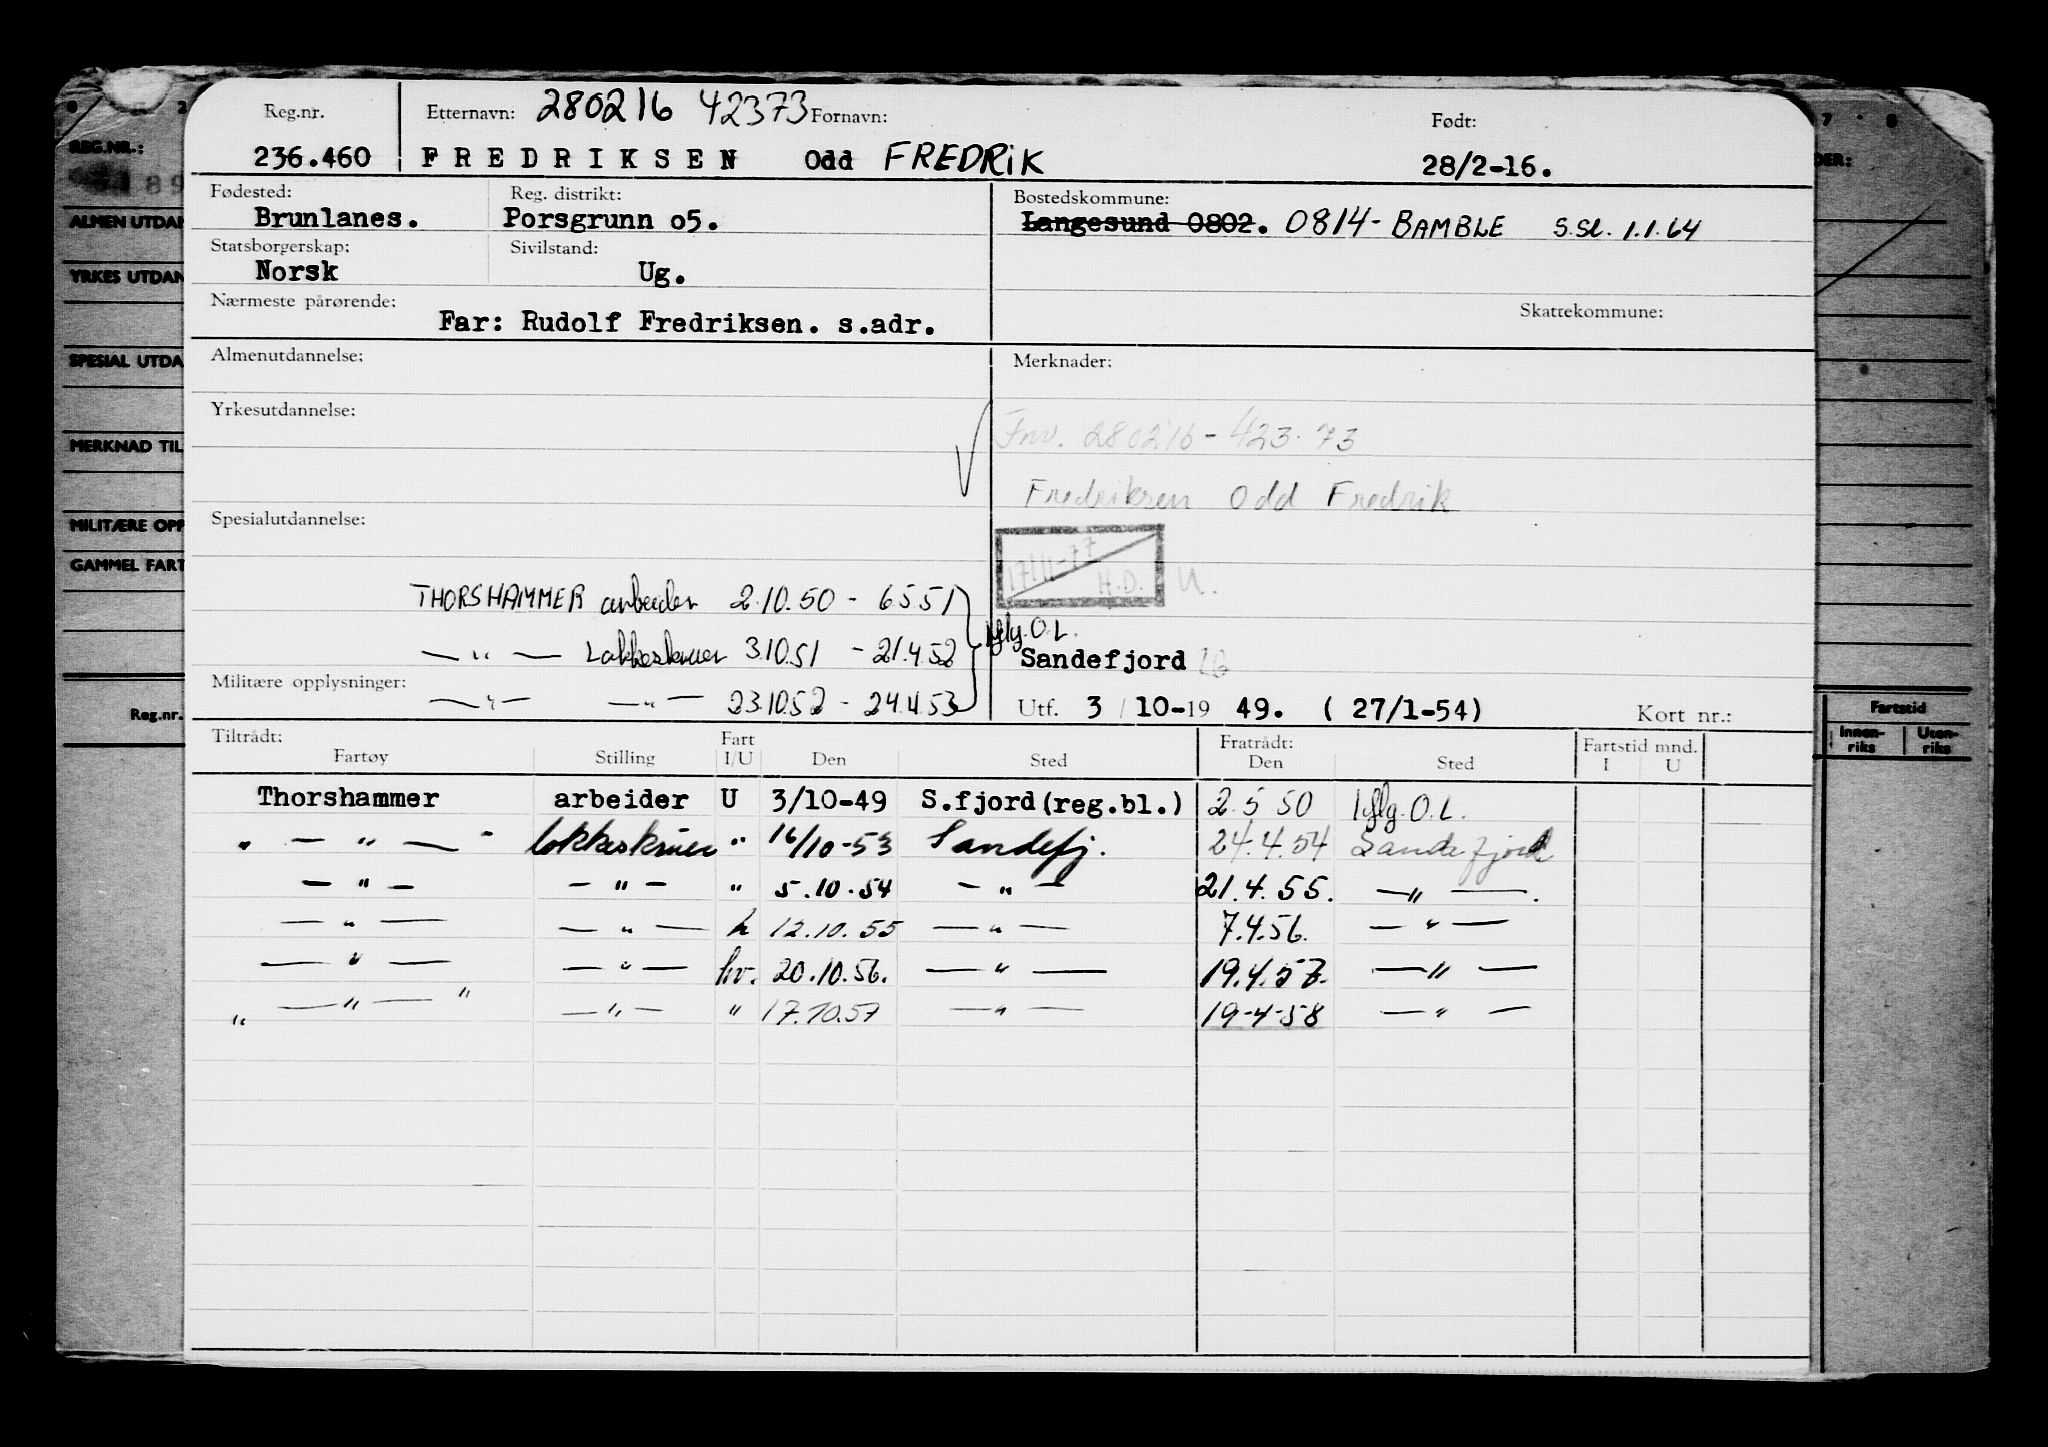 Reg.nr. Etternavn: 280216 42373 Fornavn: Født:
236.460 FREDRIKSEN Odd FREDRIK 28/2-16.
Fødested: Reg. distrikt: Bostedskommune:
Brunlanes. Porsgrunn o5. Langesund 0802. 0814- BAMBLE S.Sl. 1.1.64
Statsborgerskap: Sivilstand:
Norsk Ug.
Nærmeste pårørende: Skattekommune:
Far: Rudolf Fredriksen. s.adr.
Almenutdannelse: Merknader:
Yrkesutdannelse:
Fnr. 280216-423.73
Fredriksen Odd Fredrik
Spesialutdannelse:
17/11-77 H.D. U.
THORSHAMMER arbeider 2.10.50 - 6551
— " — Lokkeskruer 3.10.51 - 21.4.52 iflg. O.L.
Sandefjord
Militære opplysninger:
— " — — " — 23.10.52 - 24.4.53
Utf. 3/10-19 49. (27/1-54) Kort nr.:
Tiltrådt: Fart Fratrådt: Fartstid mnd.
Fartøy Stilling I/U Den Sted Den Sted I U
Thorshammer arbeider U 3/10-49 S.fjord(reg.bl.) 2.5 50 iflg. O.L.
" — " — " lokkeskruer " 16/10-53 Sandefj. 24.4.54 Sandefjord
— " — — " — " 5.10.54 — " — 21.4.55. — " —.
— " — — " — h 12.10.55 — " — 7.4.56. — " —
— " — — " — hv. 20.10.56. — " — 19.4.57. — " —
" — " — " — " — " 17.10.57 — " — 19-4-58 — " —
REG.NR.:
89
ALMEN UTDAN
YRKES UTDAN
SPESIAL UTDA
MERKNAD TIL
MILITÆRE OPP
GAMMEL FART
Reg.nr.
7 8
DER:
Fartstid
Innen-riks Uten-riks